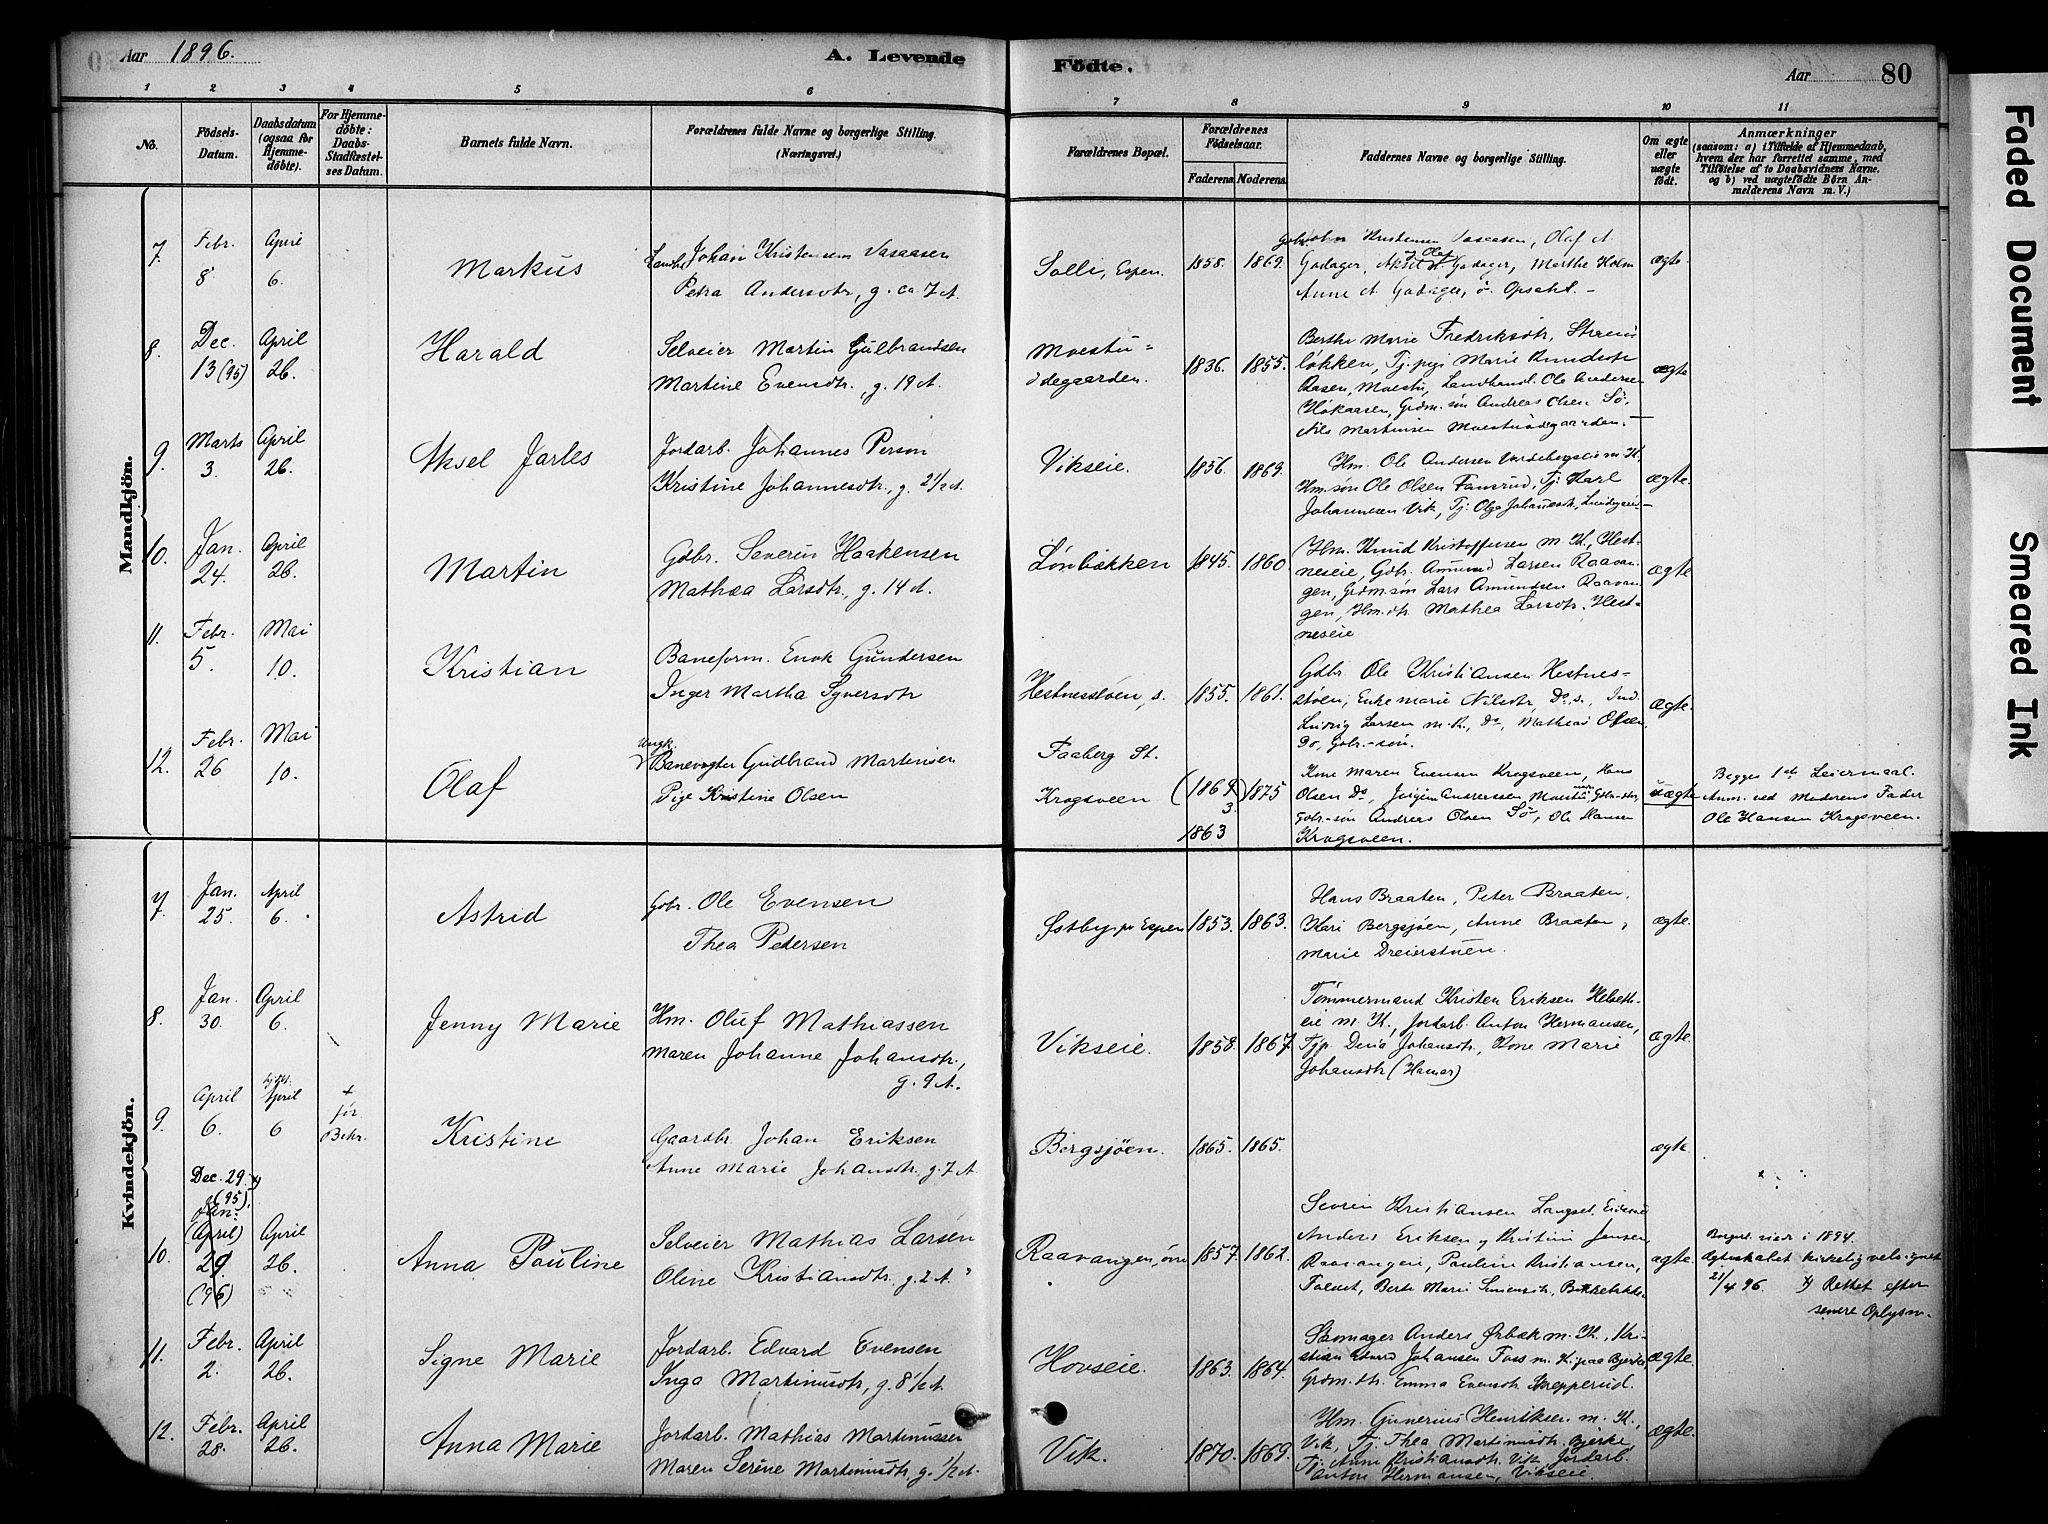 Aar 1896.
A. Levende
Fødte.
Aar
80
1 2 3 4 5 6 7 8 9 10 11
No.
Fødsels-Datum.
Daabsdatum (ogsaa for Hjemmedøbte).
For Hjemmedøbte: Daabs-Stadfæstelses Datum.
Barnets fulde Navn.
Forældrenes fulde Navne og borgerlige Stilling.
(Næringsvei.)
Forældrenes Bopæl.
Forældrenes Fødselsaar.
Faderens. Moderens.
Faddernes Navne og borgerlige Stilling.
Om ægte eller uægte født.
Anmærkninger
(saasom: a) i Tilfælde af Hjemmedaab, hvem der har forrettet samme, med Tilføielse af to Daabsvidners Navne, og b) ved uægtefødte Børn Anmelderens Navn m. V.)
Mandkjøn.
7. Febr. 8 April 6. Markus
Johan Kristensen Vasaasen
Petra Andersdtr, g. ca 7 A.
Solli, Espen 1858. 1869.
Godager, Aksel A. Godager, Marthe Holm
Anne A. Godager, ö. Opsahl.
ægte.
8. Dec. 13 (95) April 26. Harald
Selveier Martin Gulbrandsen
Martine Evensdtr, g. 19 A.
Moestu-
ödegaarden. 1836. 1855.
Berthe Marie Fredriksdtr,
løkken, Tj. pige Marie Knudsdtr
Aasen, Moestu, Landhandl. Ole Andersen
Hokaasen, Grdm. søn Andreas Olsen Sø,
Nils Martinsen Moestuödegaarden.
ægte
9. Marts 3. April 26. Aksel Jarles
Jordarb. Johannes Person
Kristine Johannesdtr, g. 2 1/2 A.
Vikseie. 1856. 1869.
Hm. Ole Andersen m. K.
Hm. søn Ole Olsen Famrud, Tj. Karl
Johannesen Vik, Tj. Olga Johannesdtr,
ægte.
10. Jan. 24. April 26. Martin
Gdbr. Severin Haakensen
Mathea Larsdtr, g. 14 A.
Lønbækken 1845. 1860.
Hm. Knud Kristoffersen m. K., Hest-
neseie, Gdbr. Amund Larsen Raavan-
gen, Grdm. søn Lars Amundsen Raavan-
gen, Hm. dtr. Mathea Larsdtr. Hest-
neseie
ægte
11. Febr. 5. Mai 10. Kristian
Baneform. Enok Gundersen
Inger Martha Syversdtr
Hestnesstøen, s. 1855. 1861.
Gdbr. Ole Kristiansen Hestnes-
støen, Enke Marie Nilsdtr, Do, s., Ind.
Ludvig Larsen m. K., Do, Mathias Olsen
Do, Gdbr.-søn.
ægte.
12. Febr. 26 Mai 10. Olaf
Ungk.
Banevogter Gudbrand Martinsen
Pige Kristine Olsen
Faaberg St.
Krogsveen (1869 3) 1875
1863
Kone Maren Evensen Krogsveen, Hans
Olsen Do, Jørgen Andreassen Moestu Gdbr.
Gdbr-søn Andreas Olsen Sø, Ole Hansen
Krogsveen.
uægte
Begges 1ste Leiermaal.
Anm. ved Moderens Fader
Ole Hansen Krogsveen.
Kvindekjøn.
7. Jan. 25. April 6. Astrid
Gdbr. Ole Evensen
Thea Petersen
Østby, Espen 1853. 1863.
Hans Braaten, Peter Braaten,
Kari Bergsjøen, Anne Braaten,
Marie Dreierstuen.
ægte.
8. Jan. 30. April 6. Jenny Marie
Hm. Oluf Mathiassen
Maren Johanne Johansdtr,
g. 9 A.
Vikseie. 1858. 1867.
Tømmermand Kristen Eriksen Helseth-
eie m. K., Jordarb. Anton Hermansen,
Tjp. Dina Johansdtr, Kone Marie
Johansdtr (Hamar)
ægte.
9. April 6. April 6 + før Bekr. Kristine
Gaardbr. Johan Eriksen
Anne Marie Johansdtr. g. 7 A.
Bergsjøen. 1865. 1865.
ægte.
10. Dec. 29. x) (95). Jan. (April) 29. (96) April 26. Anna Pauline
Selveier Mathias Larsen
Oline Kristiansdtr, g. 2 A.
Raavangen, øvre 1857. 1862.
Severin Kristiansen Langset,
Anders Eriksen og Kristine Jensen
Raavangeie, Pauline Kristiansen,
Berte Marie
ægte.
Borgerl. viede i 1894.
Ægteskabet kirkelig velsignet
21/4 96. x) Rettet efter
senere Oplysn.
11. Febr. 2. April 26. Signe Marie
Jordarb. Edvard Evensen
Inga Martinusdtr, g. 8 1/2 A.
Hovseie. 1863. 1864.
Skomager Anders Ørbæk m. K., Kri-
stian Johansen Foss m. K. paa Bjerke
Grdm. dtr. Emma Evensdtr Skrepperud.
ægte.
12. Febr. 28. April 26. Anna Marie
Jordarb. Mathias Martinussen
Maren Serine Martinusdtr g. 1/2 A.
Vik. 1870. 1869.
Hm. Gunerius Henriksen m. K.,
Vik, Tj. Thea Martinusdtr. Bjerke,
Tj. Anne Kristiansdtr Vik, Jordarb.
Anton Hermansen, Vikseie.
ægte.
Faded Document
Smeared Ink